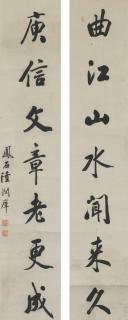 曲江山水聞來久
庾信文章老更成
鳳石陸潤庠